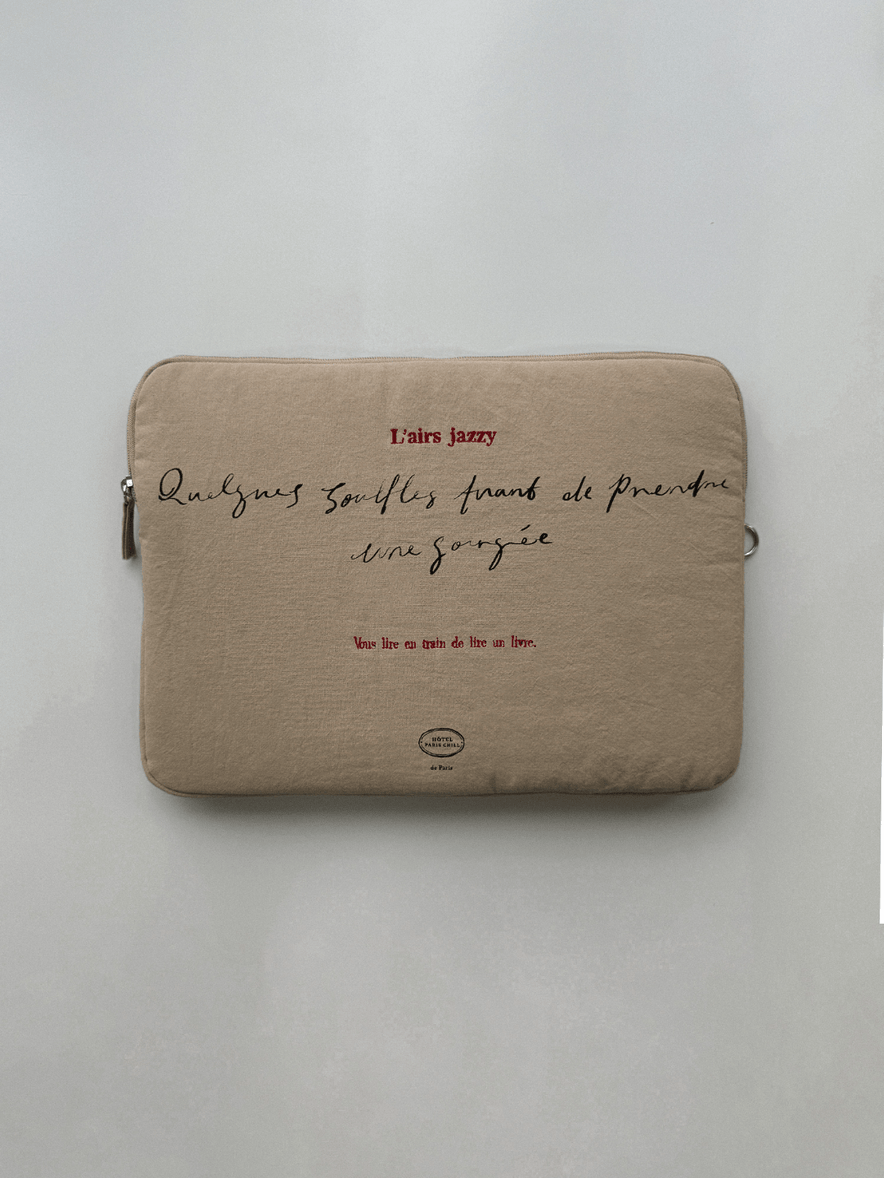 L'airs jazzy
Quelques souffles avant de prendre
une gorgée
Vous lire en train de lire un livre.
HÔTEL
PARIS CHILL
de Paris